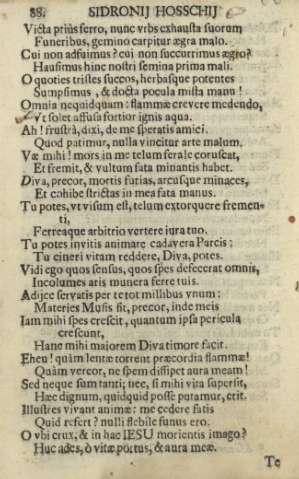 88. SIDRONIJ HOSSCHIJ
Victa priùs ferro, nunc vrbs exhausta suorum
Funeribus, gemino carpitur ægra malo.
Cui non adfuimus? cui non succurrimus ægro?
Hausimus hinc nostri semina prima mali.
O quoties tristes succos, herbasque potentes
Sumpsimus, & docta pocula mista manu!
Omnia nequidquam: flammæ crevere medendo,
Vt solet affusa fortior ignis aqua.
Ah! frustrà, dixi, de me speratis amici.
Quod patimur, nulla vincitur arte malum.
Væ mihi! mors in me telum ferale coruscat,
Et fremit, & vultum fata minantis habet.
Diva, precor, mortis furias, arcusque minaces,
Et cohibe strictas in mea fata manus.
Tu potes, vt visum est, telum extorquere fremen-
ti,
Ferreaque arbitrio vertere iura tuo.
Tu potes invitis animare cadavera Parcis:
Tu cineri vitam reddere, Diva, potes.
Vidi ego quos sensus, quos spes defecerat omnis,
Incolumes aris munera ferre tuis.
Adijce servatis per te tot millibus vnum:
Materies Musis sit, precor, inde meis
Iam mihi spes crescit, quantum ipsa pericula
crescunt,
Hanc mihi maiorem Diva timore facit.
Eheu! quàm lentæ torrent præcordia flammæ!
Quàm vereor, ne spem dissipet aura meam!
Sed neque sum tanti; nec, si mihi vita supersit,
Hæc dignum, quidquid posse putamur, erit.
Illustres vivant animæ: me cedere fatis
Quid refert? nulli flebile funus ero.
O vbi crux, & in hac IESU morientis imago?
Huc ades, ò vitæ portus, & aura meæ.
Te